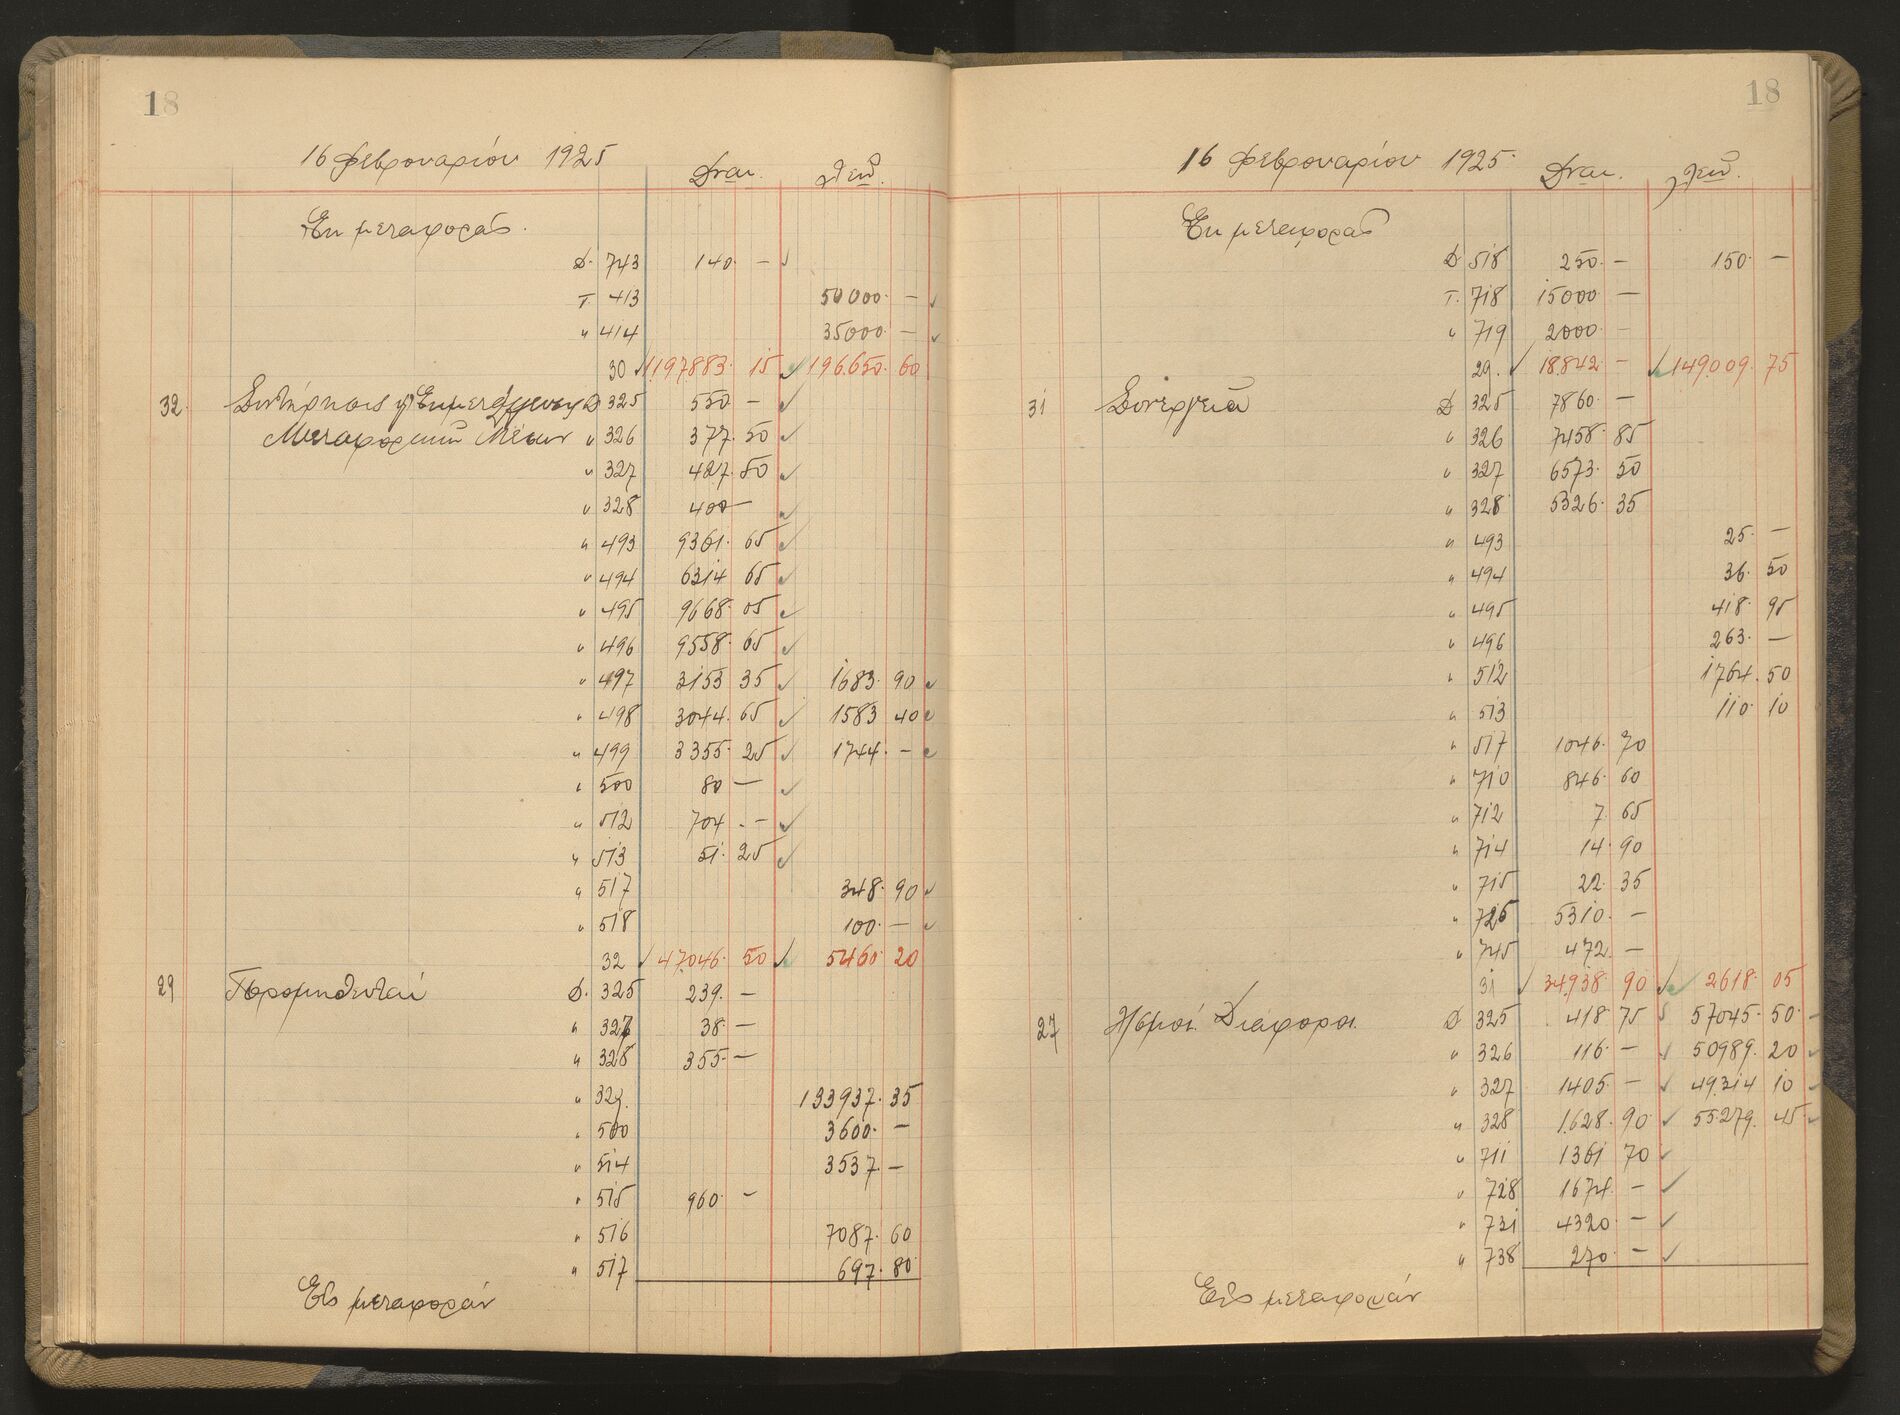 18
16 Φεβρουαρίου 1925
Δναι. Λεῖν.
Ἐκ μεταφορᾶς.
Δ. 743 140. —
Τ. 413 50000. —
" 414 35000. —
30 1197883. 15 196.650. 60
32. Συντήρησις Ἐκμετάλλευσις Δ 325 550 —
Μεταφορικῶν Μέσων " 326 377. 50
" 327 427. 50
" 328 400 —
" 493 9361. 65
" 494 6314 65
" 495 9668. 05
" 496 9558. 65
" 497 3153 35 1683. 90
" 498 3044. 65 1583 40
" 499 3355. 25 1744. —
" 500 80 —
" 512 704. —
" 513 51. 25
" 517 348. 90
" 518 100. —
32 47.046. 50 5460. 20
29 Προμηθευταί Δ. 325 239. —
" 327 38. —
" 328 355. —
" 329. 133937. 35
" 500 3600. —
" 514 3537. —
" 515 960. —
" 516 7087. 60
" 517 697. 80
Εἰς μεταφοράν
18
16 Φεβρουαρίου 1925.
Δναι. Λεῖν.
Ἐκ μεταφορᾶς
Δ 518 250. — 150. —
Τ. 718 15000. —
" 719 2000. —
29. 18.842. — 149.009. 75
31 Συνεργεῖα Δ 325 7860. —
" 326 7458. 85
" 327 6573. 50
" 328 5326. 35
" 493 25. —
" 494 36. 50
" 495 418. 95
" 496 263. —
" 512 1764. 50
" 513 110. 10
" 517 1046. 70
" 710 846. 60
" 712 7. 65
" 714 14. 90
" 715 22. 35
" 725 5310. —
" 745 472. —
31 34.938. 90 2618. 05
27 Διάφοροι. Δ 325 418 75 57045. 50
" 326 116. — 50989. 20
" 327 1405. — 49.314 10
" 328 1.628. 90 55.279. 45
" 711 1361 70
" 728 1674. —
" 731 4320. —
" 738 270. —
Εἰς μεταφοράν